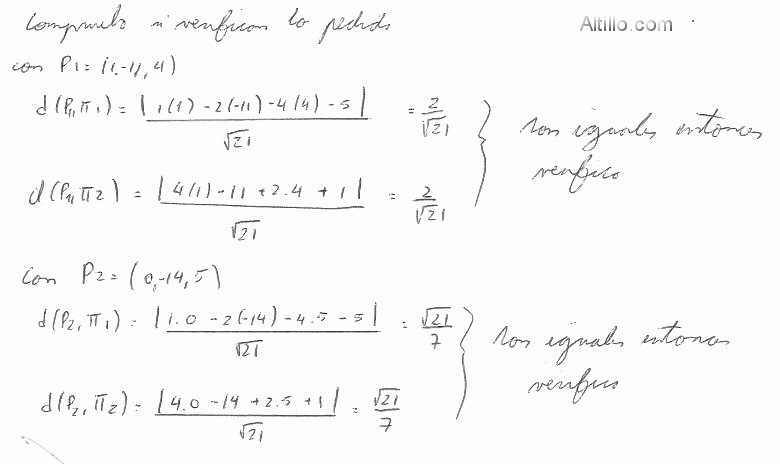 Compruebo si verifican lo pedido
Altillo.com
con P1 = (1,-11,4)
d(P1,π1) = |1(1) -2(-11) -4(4) -5| / √21 = 2/√21
d(P1,π2) = |4(1) -11 +2.4 +1| / √21 = 2/√21
son iguales entonces
verifico
Con P2 = (0,-14,5)
d(P2,π1) = |1.0 -2(-14) -4.5 -5| / √21 = √21/7
d(P2,π2) = |4.0 -14 +2.5 +1| / √21 = √21/7
son iguales entonces
verifico